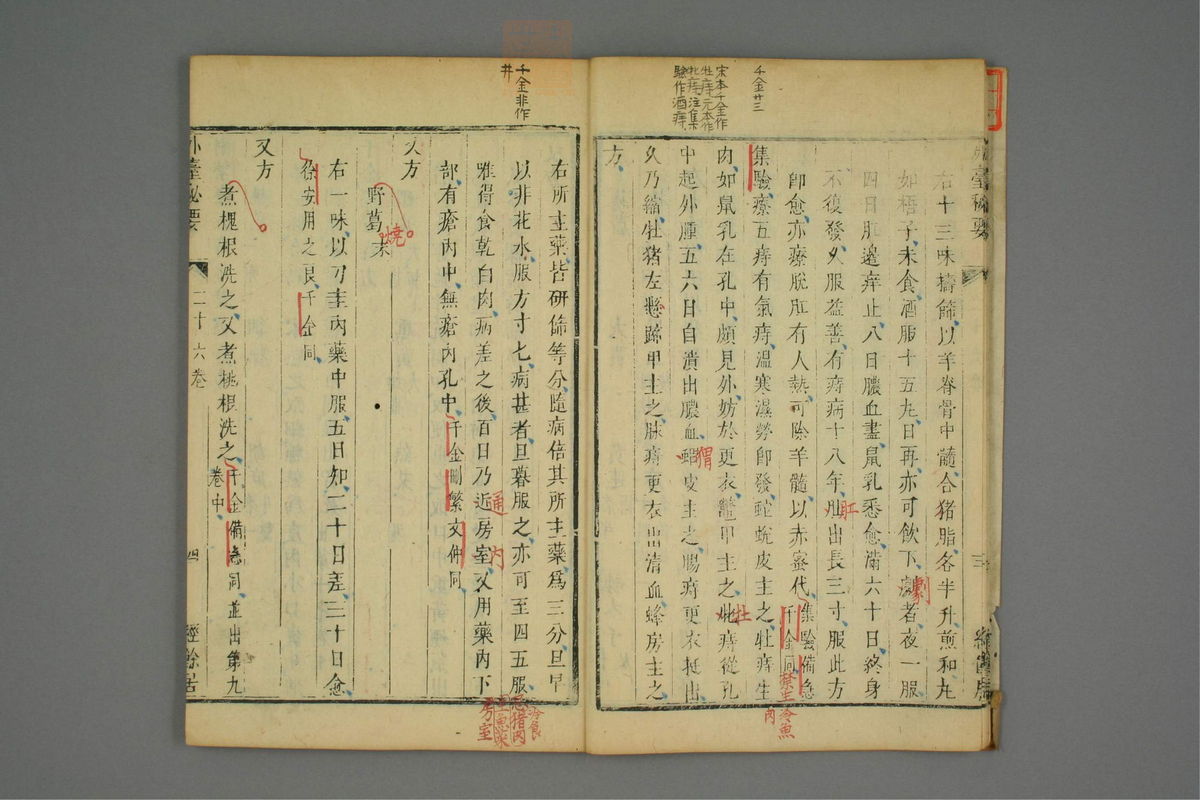 千金廿三
宋本千金作
牡痔元本作
牝痔注集
驗作酒痔
右十三味擣篩以羊脊骨中髓合猪脂各半升煎和丸
如梧子未食酒服十五丸日再亦可飲下劇者夜一服
四日肛邊痒止八日膿血盡鼠乳悉愈滿六十日終身
不復發久服益善有痔病十八年肛出長三寸服此方
即愈亦療脫肛有人熱可除羊髓以赤蜜代
集驗備急
千金同
禁生冷魚
肉
集驗療五痔有氣痔温寒濕勞即發蛇蛻皮主之牡痔生
肉如鼠乳在孔中頗見外妨於更衣鼈甲主之牝痔從孔
中起外腫五六日自潰出膿血蝟皮主之腸痔更衣挺出
久乃縮牡猪左懸蹄甲主之脉痔更衣出清血蜂房主之
方
劇
肛
猬
牡
千金非作
井
右所主藥皆研篩等分隨病倍其所主藥為三分旦早
以非花水服方寸七病甚者旦暮服之亦可至四五服
唯得食乾白肉病差之後百日乃近房室又用藥內下
部有瘡內中無瘡內孔中
千金刪繁
文仲同
通
內
冷食
忌猪肉
生魚菜
房室
又方
野葛末
燒
右一味以刀圭內藥中服五日知二十日差三十日愈
徐安用之良千金同
又方
煮槐根洗之又煮桃根洗之
千金備急同並出第九
卷中
外臺秘要
二十六卷
四
經餘居
外臺秘要
三
經餘居